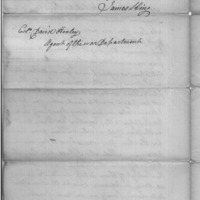 James King
Col. David Henley
Agent of the war Department